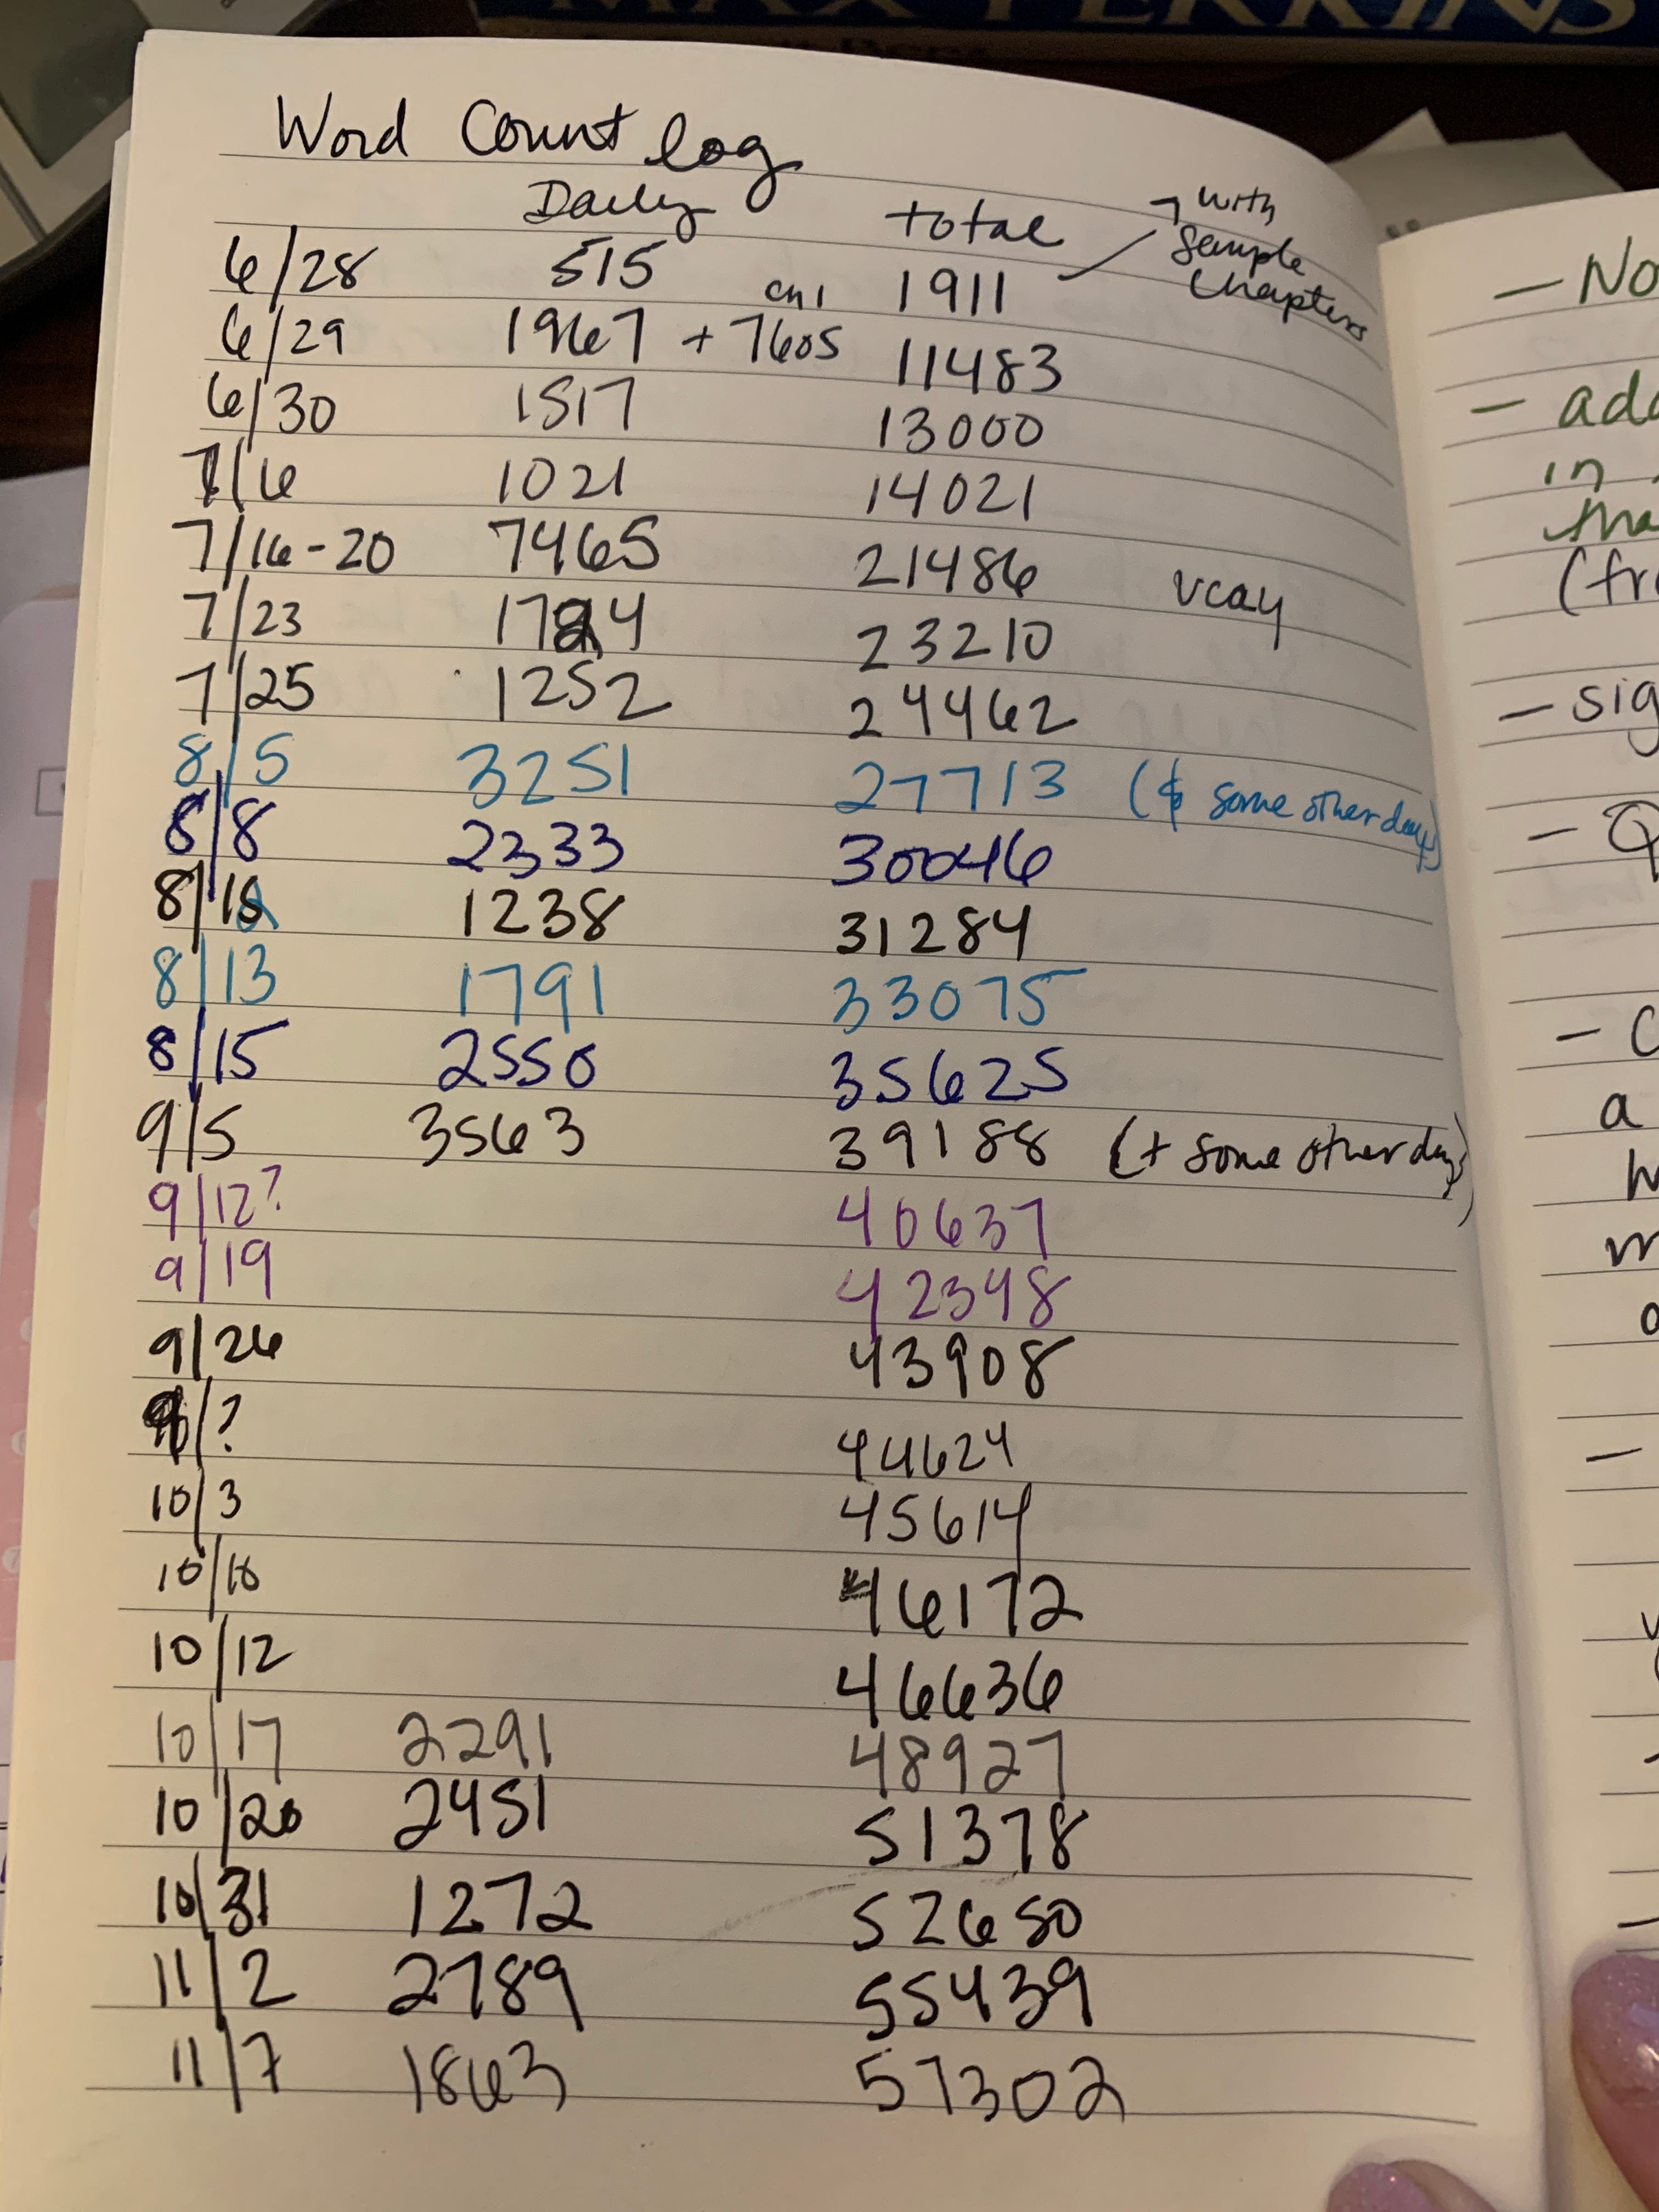 MAX PERKINS
Word Count log
Daily total → with
Sample
Chapters
6/28 515 1911
6/29 1967 + 7605 ch 1 11483
6/30 1517 13000
7/6 1021 14021
7/16-20 7465 21486 vcay
7/23 1724 23210
7/25 1252 24462
8/5 3251 27713 (& some other days)
8/8 2333 30046
8/12 1238 31284
8/13 1791 33075
8/15 2550 35625
9/5 3563 39188 (+ some other days)
9/12? 40637
9/19 42348
9/26 43908
9/? 44624
10/3 45614
10/10 46172
10/12 46636
10/17 2291 48927
10/20 2451 51378
10/31 1272 52650
11/2 2789 55439
11/7 1863 57302
— No
— add
in
tha
(fro
— sig
— Q
— C
a